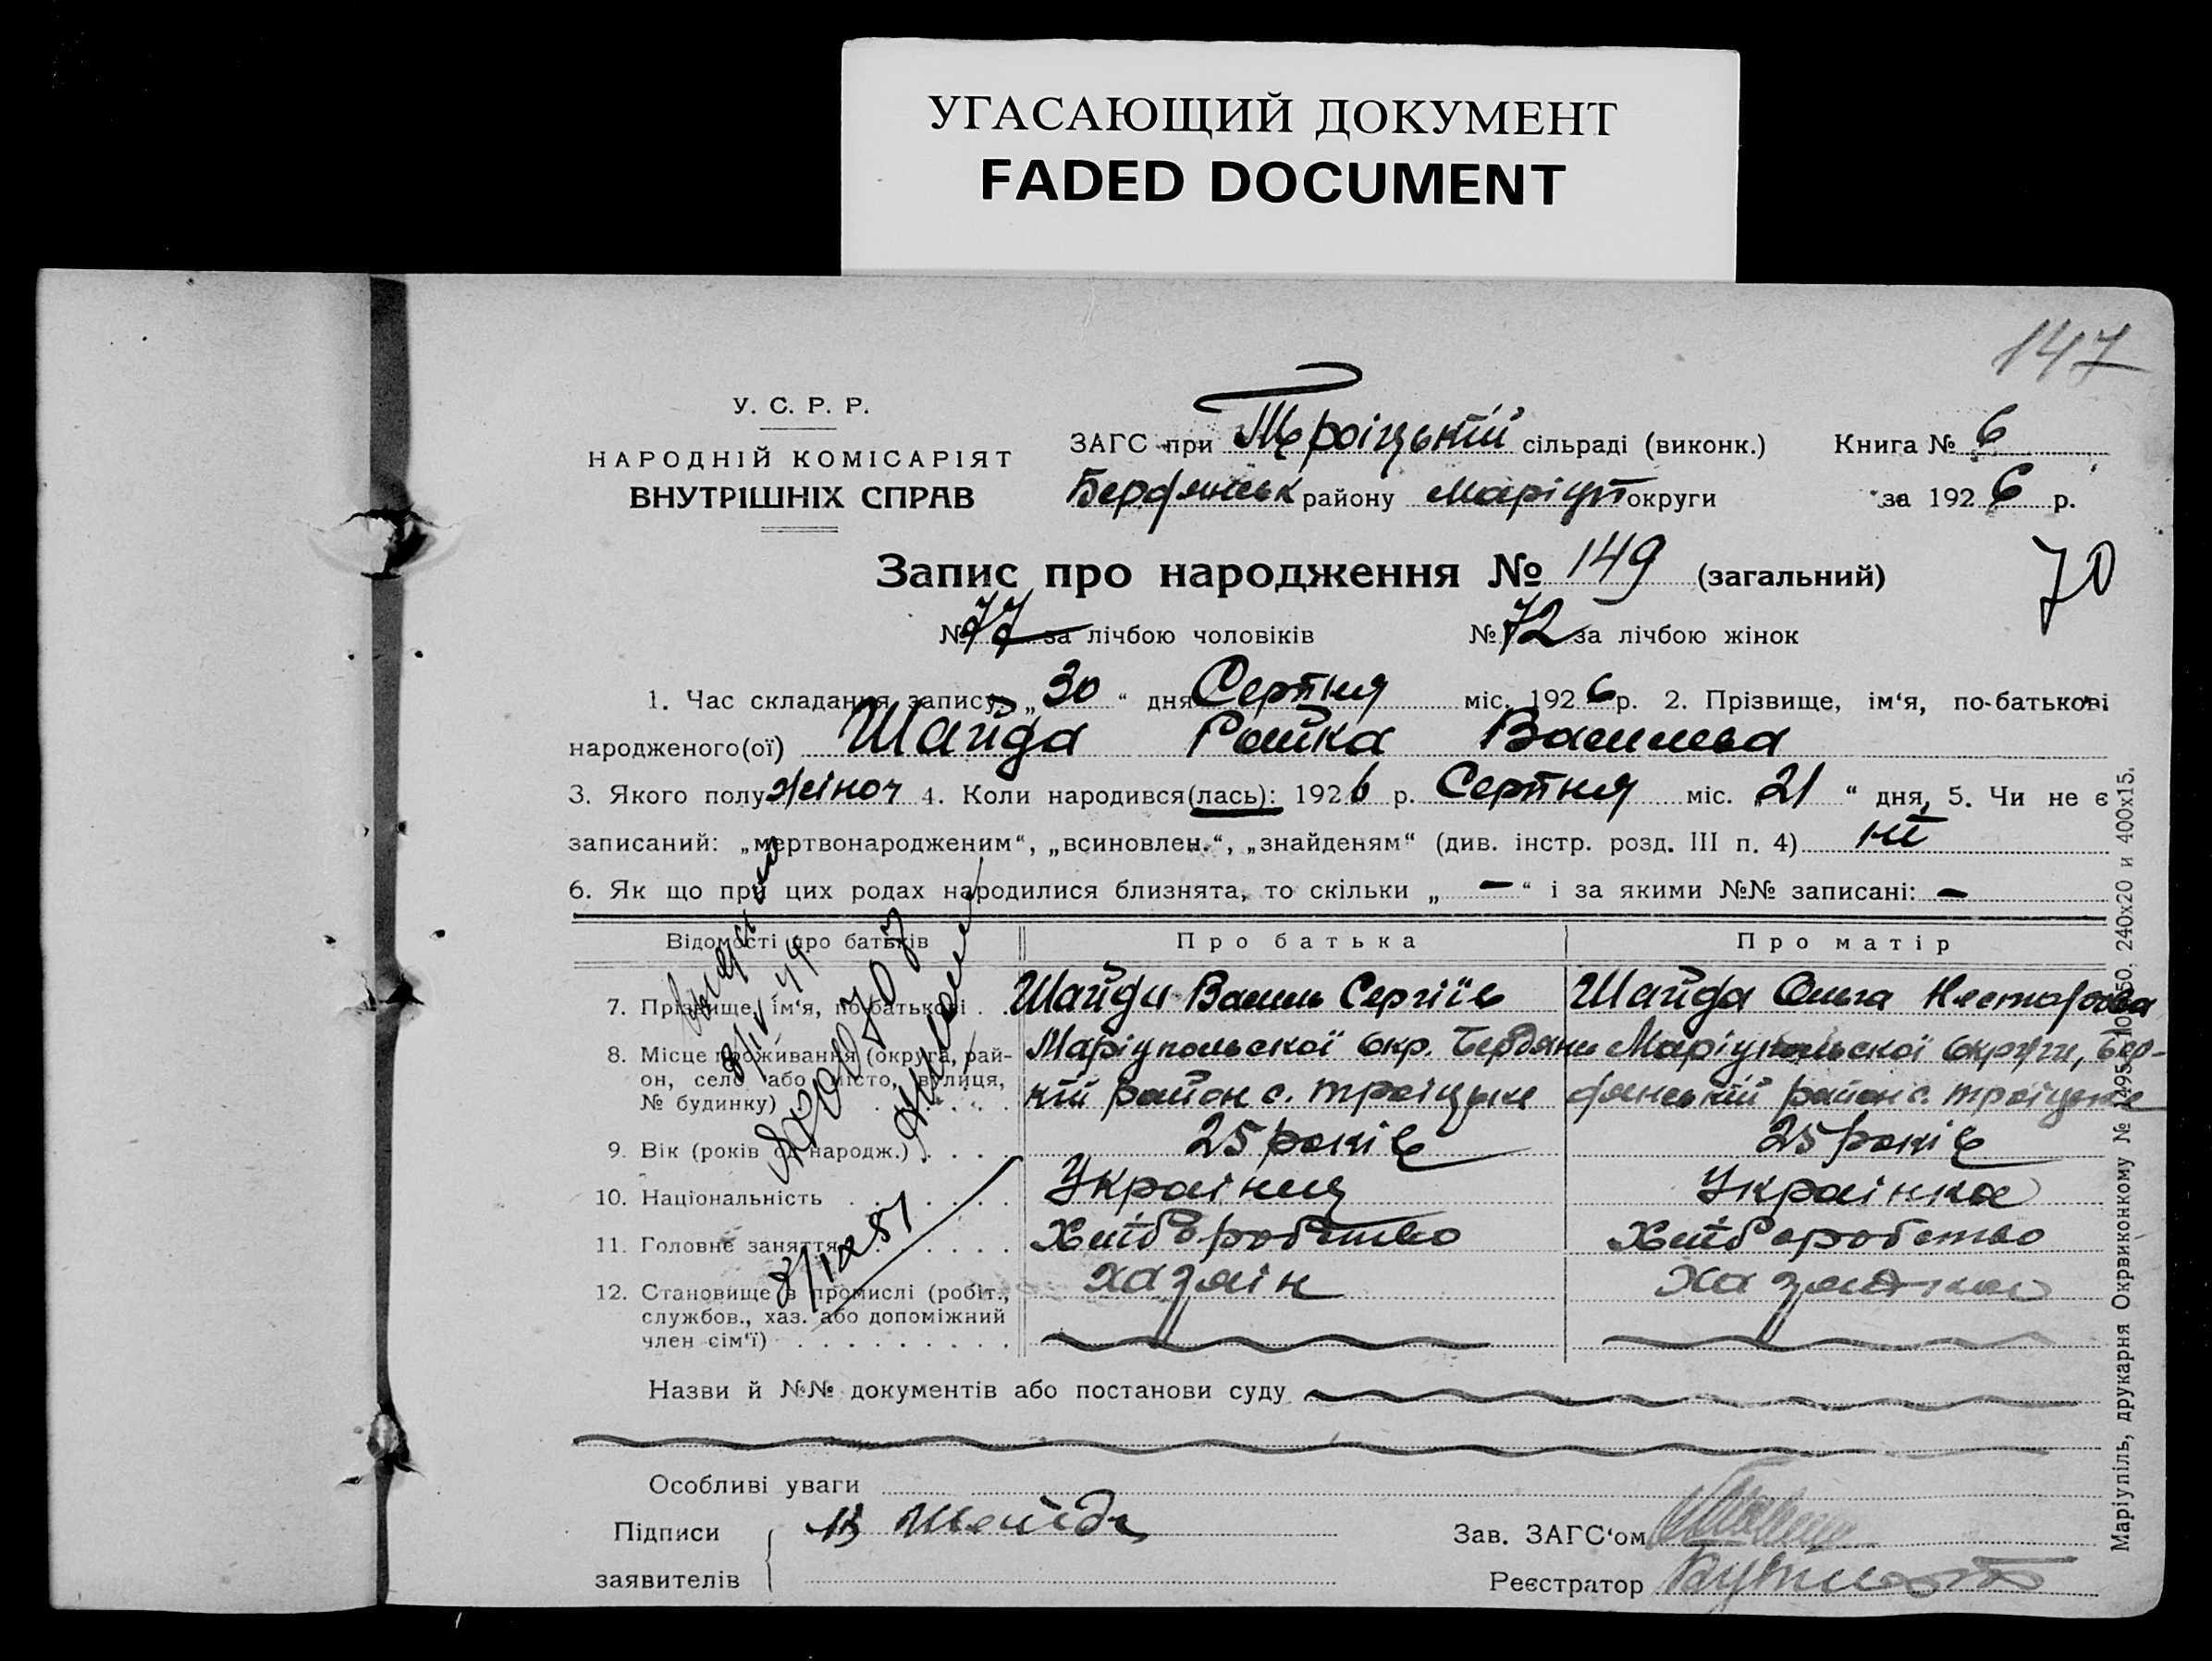 УГАСАЮЩИЙ ДОКУМЕНТ
FADED DOCUMENT
147
У. С. Р. Р.
НАРОДНІЙ КОМІСАРІЯТ
ВНУТРІШНІХ СПРАВ
ЗАГС при Троіцькій сільраді (виконк.) Книга № 6
Бердянськ району Маріуп округи за 1926 р.
Запис про народження № 149 (загальний)
70
№ 77 за лічбою чоловіків № 72 за лічбою жінок
1. Час складання запису: „30“ дня Серпня міс. 1926 р. 2. Прізвище, ім‘я, по-батькові
народженого(ої) Шайда Раїка Васильева
3. Якого полу жіноч 4. Коли народився(лась): 1926 р. Серпня міс. „21“ дня, 5. Чи не є
записаний: „мертвонародженим“, „всиновлен.“, „знайденям“ (див. інстр. розд. III п. 4) ні
6. Як що при цих родах народилися близнята, то скільки „ — “ і за якими №№ записані: —
Відомості про батьків Про батька Про матір
7. Прізвище, ім‘я, по-батькові . . Шайда Василь Сергіїв Шайда Ольга Несторова
8. Місце проживання (округа, рай- Маріупольскої Окр. Бердянс Маріупольскої Округи, Бер-
он, село або місто, вулиця, кій район с. Троіцьке дянській район с. Троіцьке
№ будинку) . . . . .
9. Вік (років од народж.) . . . . 25 років 25 років
10. Національність . . . . . . . Українця Українка
11. Головне заняття . . . . . . . Хлібробство Хліборобство
12. Становище в промислі (робіт., хазяін Хазяйка
службов., хаз. або допоміжний
член сім‘ї) . . . . . . . . .
8/IX 51
Назви й №№ документів або постанови суду
Особливі уваги
Підписи В Шайда Зав. ЗАГС‘ом
заявителів Реєстратор
Маріупіль, друкарня Окрвиконкому № 240x20 и 400x15.